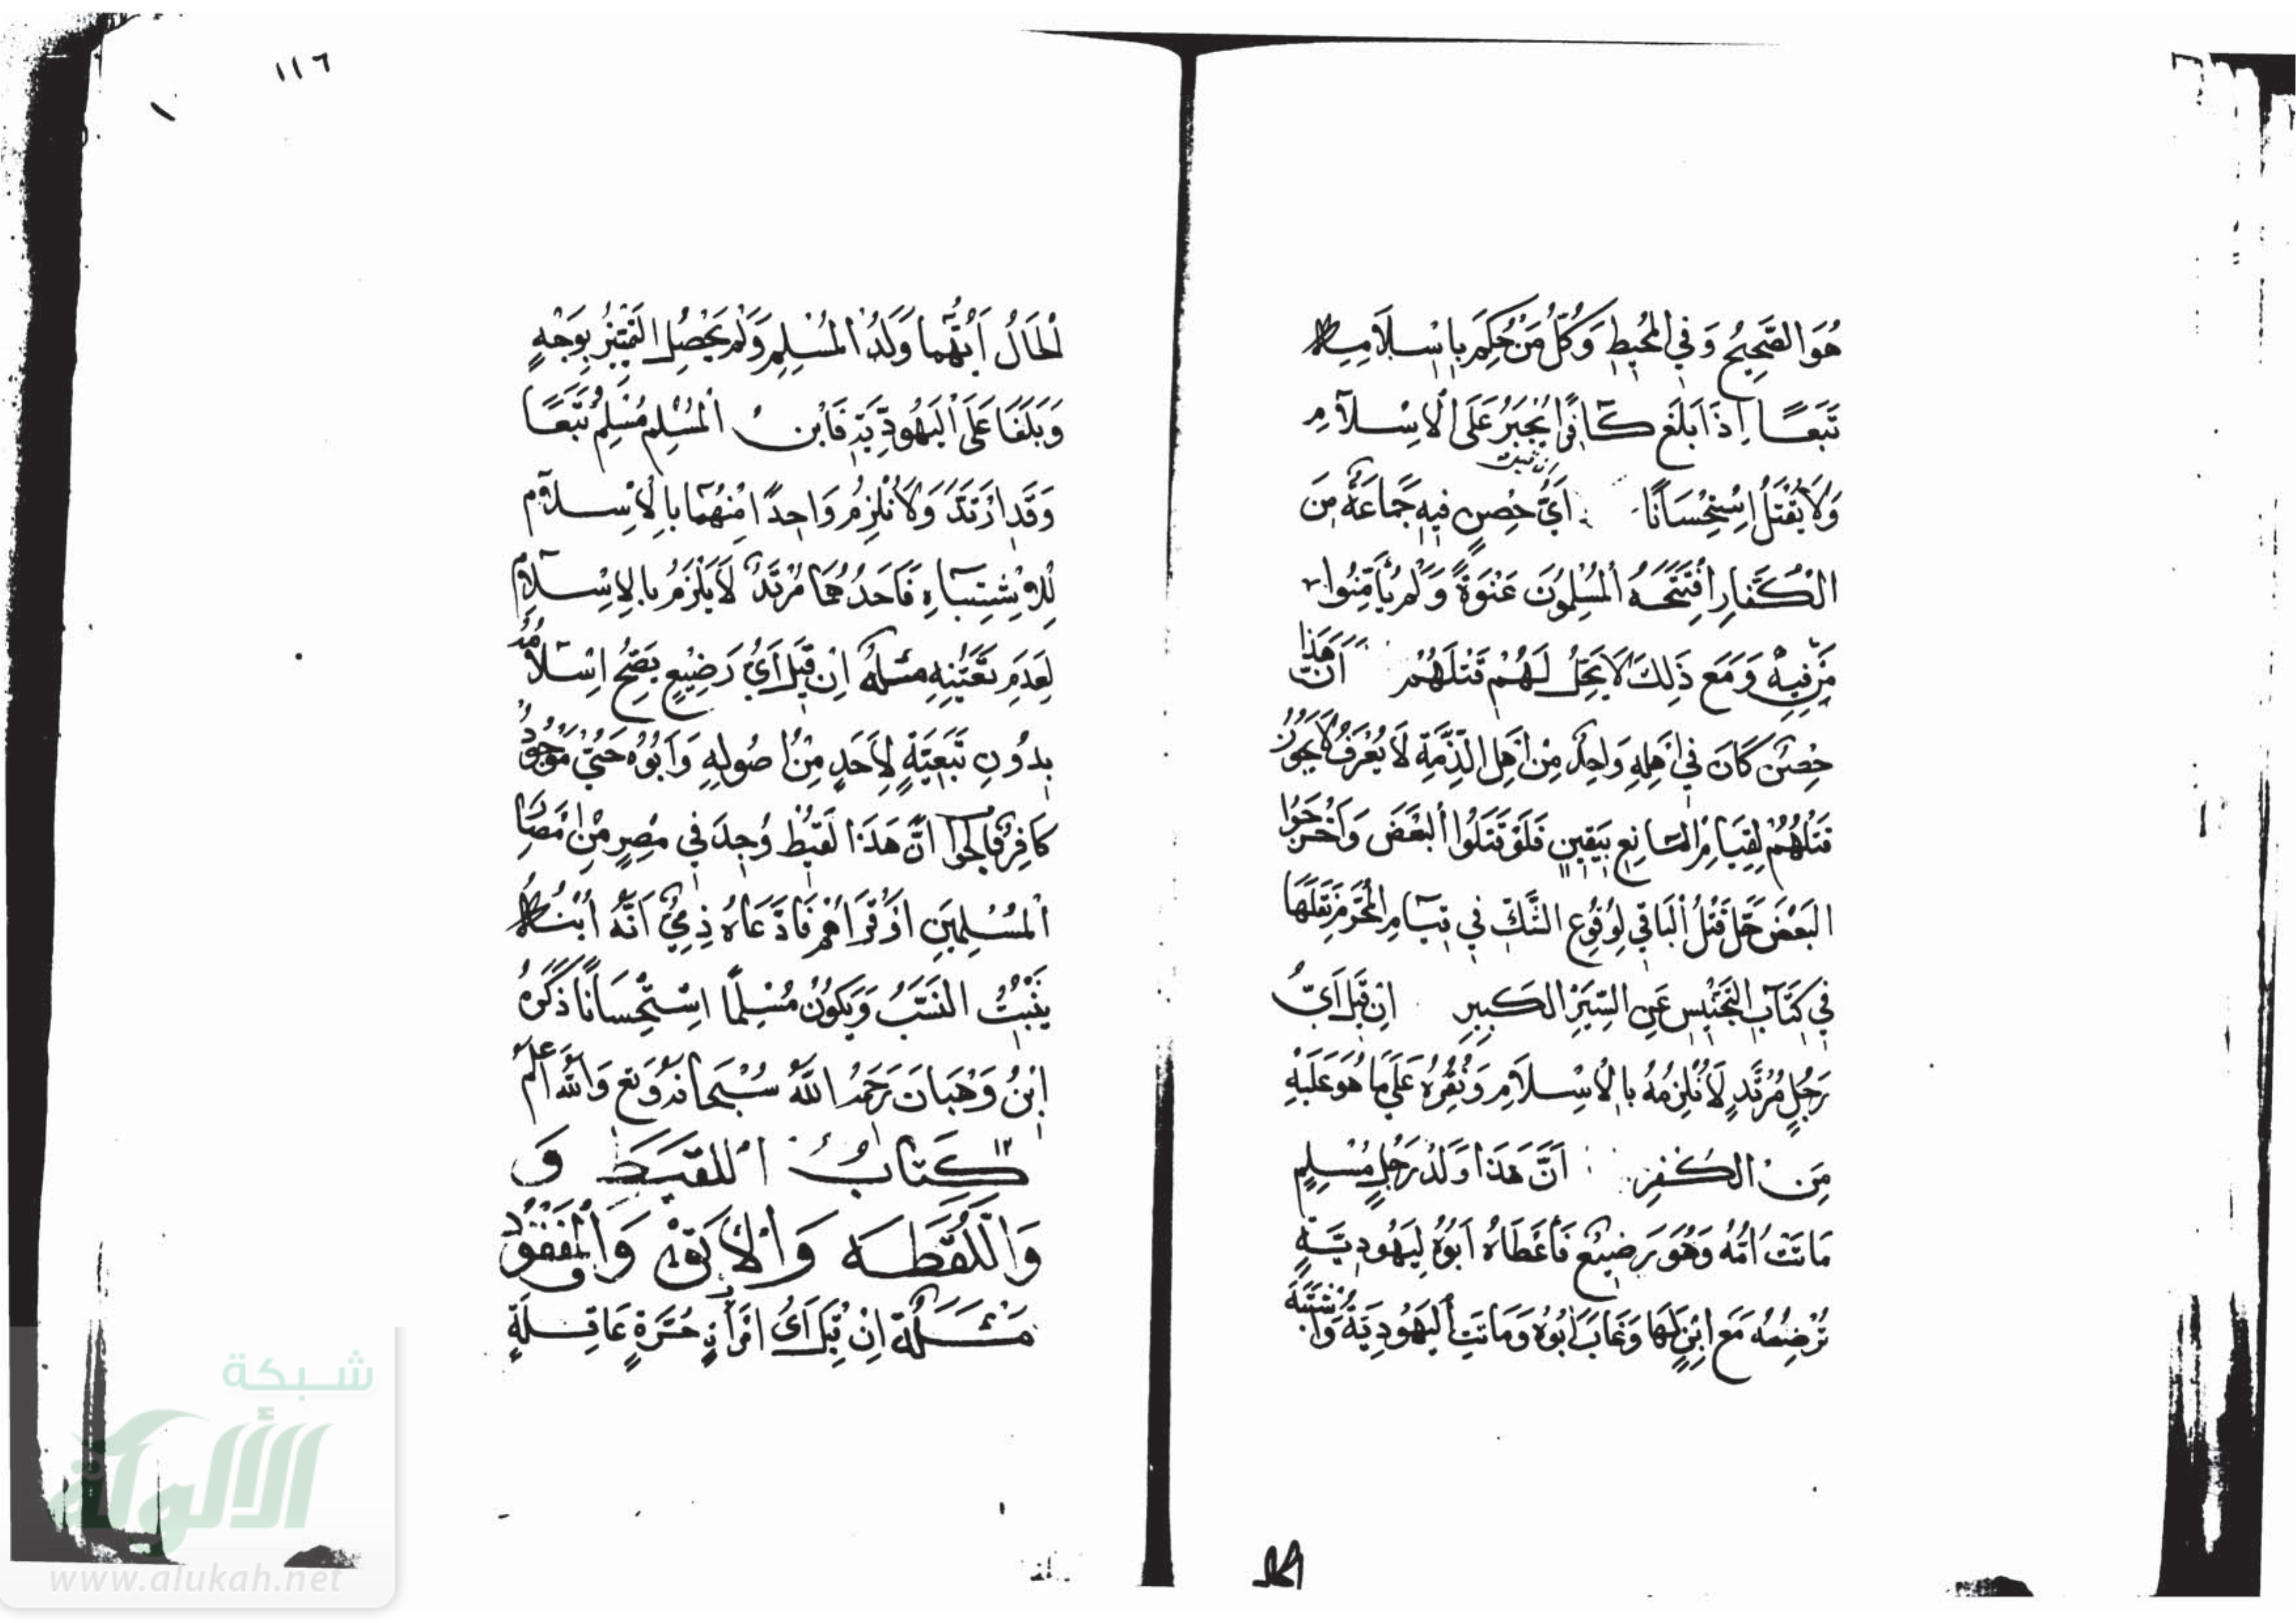 هُوَ الصَّحِيحُ وَفِي المُحِيطِ وَكُلُّ مَنْ حُكِمَ بِاِسْلَامِهِ
تَبَعًا اِذَا بَلَغَ كَافِرًا يُجْبَرُ عَلَى الْاِسْلَامِ
وَلَا يُقْتَلُ اِسْتِحْسَانًا اَيُّ حِصْنٍ فِيهِ جَمَاعَةٌ مِنَ
الْكُفَّارِ افْتَتَحَهُ الْمُسْلِمُونَ عَنْوَةً وَلَمْ يُأَمِّنُوا
مَنْ فِيهِ وَمَعَ ذَلِكَ لَا يَحِلُّ لَهُمْ قَتْلَهُمْ اَنَّ هَذَا
حِصْنٌ كَانَ فِي اَهْلِهِ وَاحِدٌ مِنْ اَهْلِ الذِّمَّةِ لَا يُعْرَفُ لَا يَجُوزُ
قَتْلُهُمْ لِقِيَامِ الْمَانِعِ بِيَقِينٍ فَلَوْ قَتَلُوا الْبَعْضَ وَاَخْرَجُوا
الْبَعْضَ حَلَّ قَتْلُ الْبَاقِي لِوُقُوعِ الشَّكِّ فِي قِيَامِ الْمُحَرِّمِ نَقَلَهَا
فِي كِتَابِ التَّجْنِيسِ عَنِ السِّيَرِ الْكَبِيرِ اِنْ قِيلَ اَيُّ
رَجُلٍ مُرْتَدٍ لَا نُلْزِمُهُ بِالْاِسْلَامِ وَنُقِرُّهُ عَلَى مَا هُوَ عَلَيْهِ
مِنَ الْكُفْرِ اَنَّ هَذَا وَلَدُ رَجُلٍ مُسْلِمٍ
مَاتَتْ اُمُّهُ وَهُوَ رَضِيعٌ فَاَعْطَاهُ اَبُوهُ لِيَهُودِيَّةٍ
تُرْضِعُهُ مَعَ ابْنٍ لَهَا وَغَابَ اَبُوهُ وَمَاتَتِ الْيَهُودِيَّةُ وَاشْتَبَهَ
١١٦
الْحَالُ اَيُّهُمَا وَلَدُ الْمُسْلِمِ وَلَمْ يَحْصُلِ التَّمْيِيزُ بِوَجْهٍ
وَبَلَغَا عَلَى الْيَهُودِيَّةِ فَابْنُ الْمُسْلِمِ مُسْلِمٌ تَبَعًا
وَقَدِ ارْتَدَّ وَلَا نُلْزِمُ وَاحِدًا مِنْهُمَا بِالْاِسْلَامِ
لِلْاِشْتِبَاهِ فَاَحَدُهُمَا مُرْتَدٌّ لَا يَلْزَمُ بِالْاِسْلَامِ
لِعَدَمِ تَعَيُّنِهِ مسئلة اِنْ قِيلَ اَيُّ رَضِيعٍ يَصِحُّ اِسْلَامُهُ
بِدُونِ تَبَعِيَّةٍ لِاَحَدٍ مِنْ اُصُولِهِ وَاَبُوهُ حَيٌّ مَوْجُودٌ
كَافِرٌ فالجواب اَنَّ هَذَا لَقِيطٌ وُجِدَ فِي مِصْرٍ مِنْ اَمْصَارِ
الْمُسْلِمِينَ اَوْ قُرَاهُمْ فَادَّعَاهُ ذِمِّيٌّ اَنَّهُ ابْنُهُ
يَثْبُتُ النَّسَبُ وَيَكُونُ مُسْلِمًا اِسْتِحْسَانًا ذَكَرَهُ
اِبْنُ وَهْبَانَ رَحِمَهُ اللَّهُ سُبْحَانَهُ وَتَع وَاللَّهُ اَعْلَمُ
كِتَابُ اللَّقِيطِ وَ
وَاللُّقَطَةِ وَالْاَبَقِ وَالْمَفْقُودِ
مَسْئَلَةٌ اِنْ قِيلَ اَيُّ امْرَأَةٍ حُرَّةٍ عَاقِلَةٍ
شبكة
الألوكة
www.alukah.net